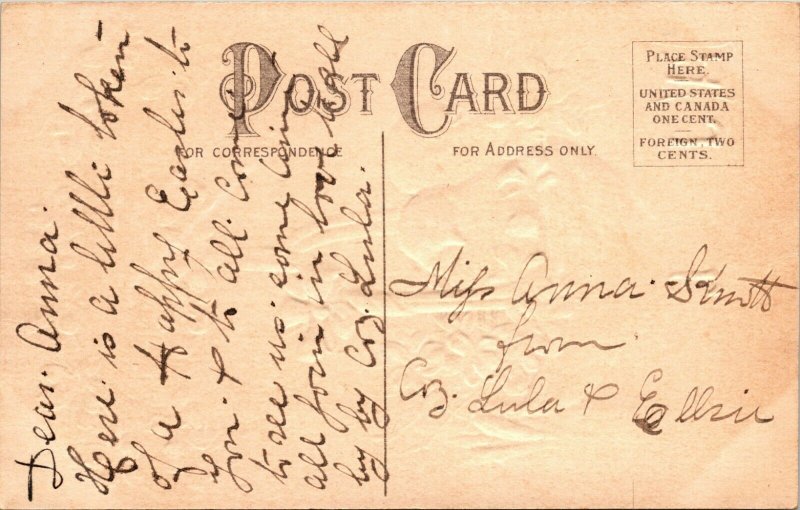 POST CARD
FOR CORRESPONDENCE
FOR ADDRESS ONLY.
PLACE STAMP
HERE.
UNITED STATES
AND CANADA
ONE CENT.
FOREIGN, TWO
CENTS.
Dear. Anna.
Here is a little token
of a Happy Easter to
you. & to all
to see us some time
all join in love to all
by by Coz. Lula.
Miss Anna
from
Coz. Lula & Ellsie